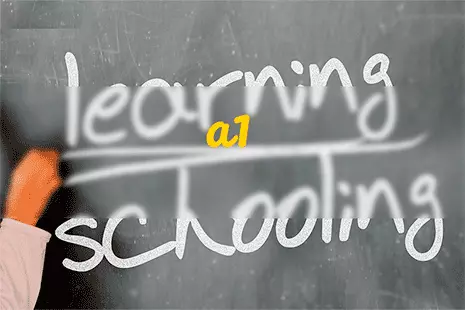 learning
a1
schooling